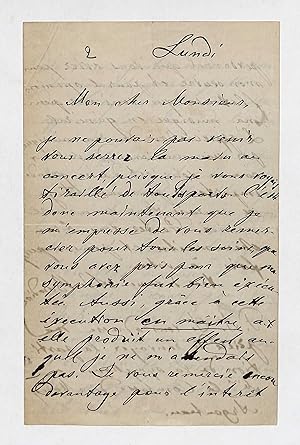 2 Lundi
Mon cher Monsieur,
je ne pouvais pas venir
vous serrer la main au
concert, puisque je vous voyais
tiraillé de tous parts. C'est
donc maintenant que je
m'empresse de vous remer-
cier pour tous les soins que
vous avez pris pour que ma
symphonie fut bien exécu-
tée. Aussi, grâce à cette
exécution en maître, a-t-
elle produit un effet au-
quel je ne m'attendais
pas. Je vous remercie encore
davantage pour l'intérêt